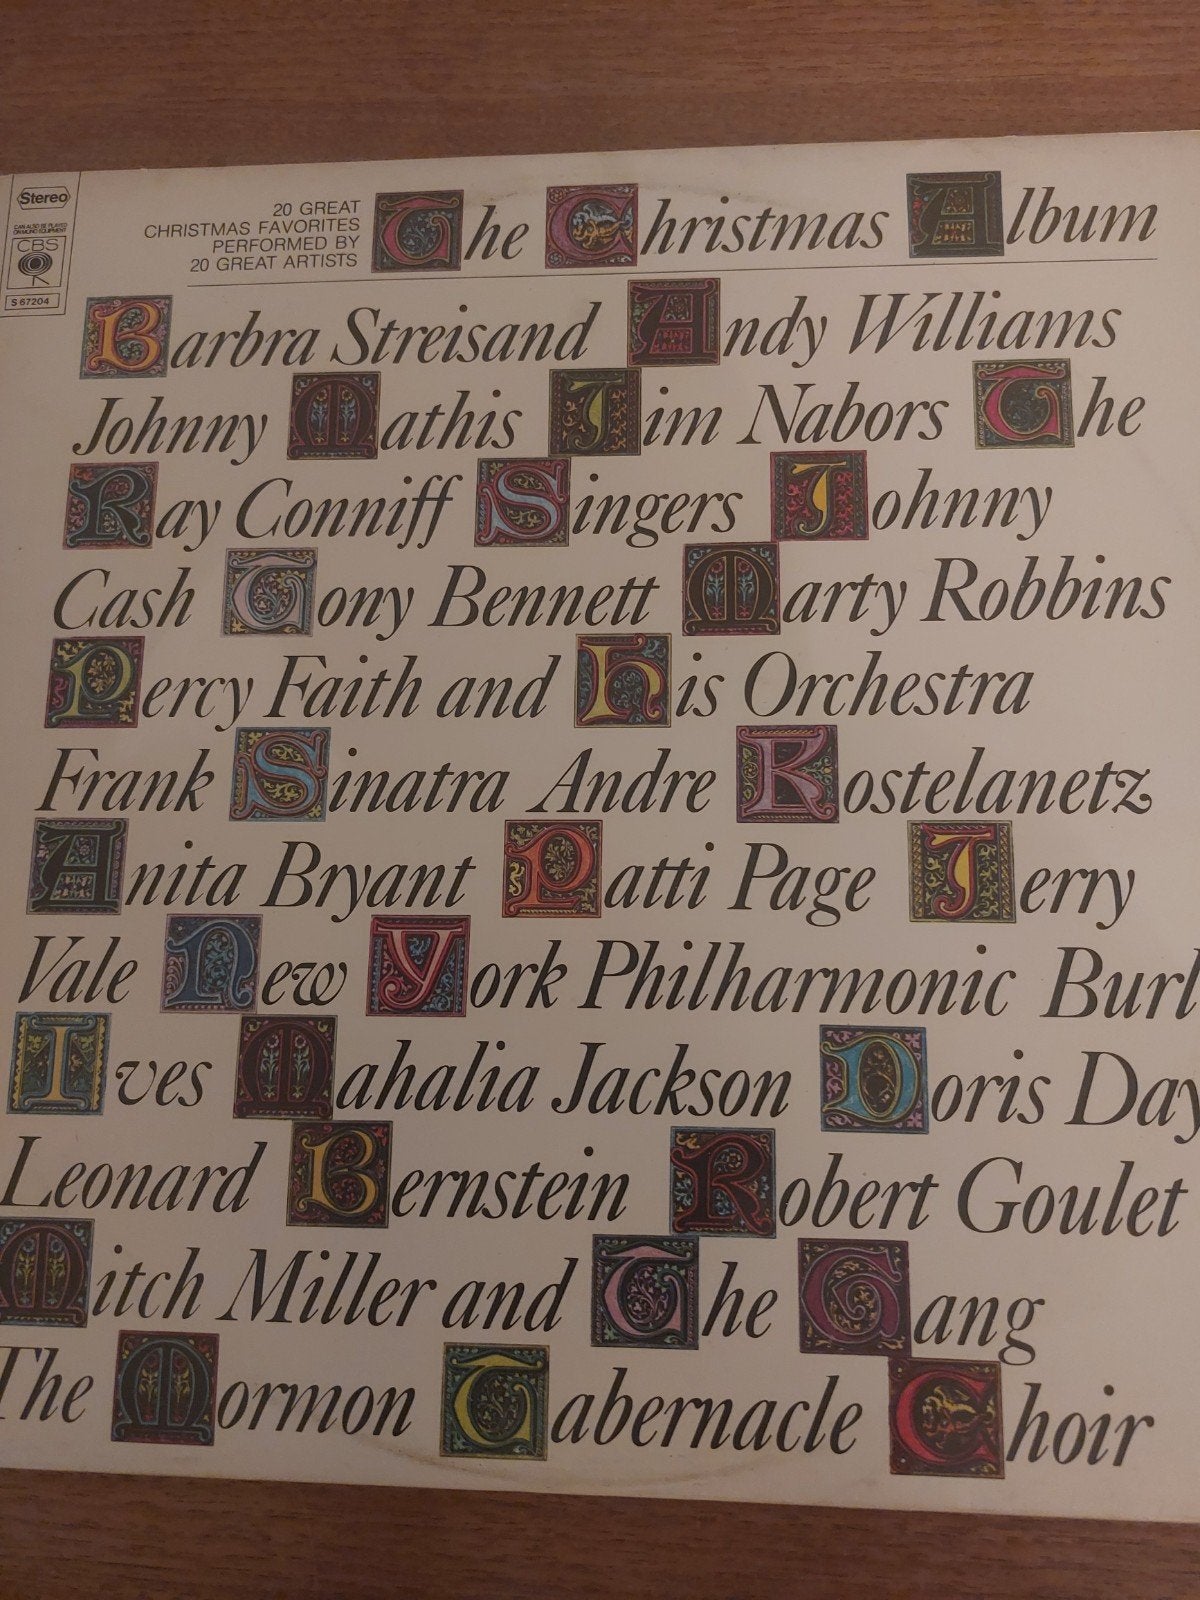 Stereo
CAN ALSO BE PLAYED
ON MONO EQUIPMENT
CBS
S 67204
20 GREAT
CHRISTMAS FAVORITES
PERFORMED BY
20 GREAT ARTISTS
The Christmas Album
Barbra Streisand Andy Williams
Johnny Mathis Jim Nabors The
Ray Conniff Singers Johnny
Cash Tony Bennett Marty Robbins
Percy Faith and His Orchestra
Frank Sinatra Andre Kostelanetz
Anita Bryant Patti Page Jerry
Vale New York Philharmonic Burl
Ives Mahalia Jackson Doris Day
Leonard Bernstein Robert Goulet
Mitch Miller and The Gang
The Mormon Tabernacle Choir